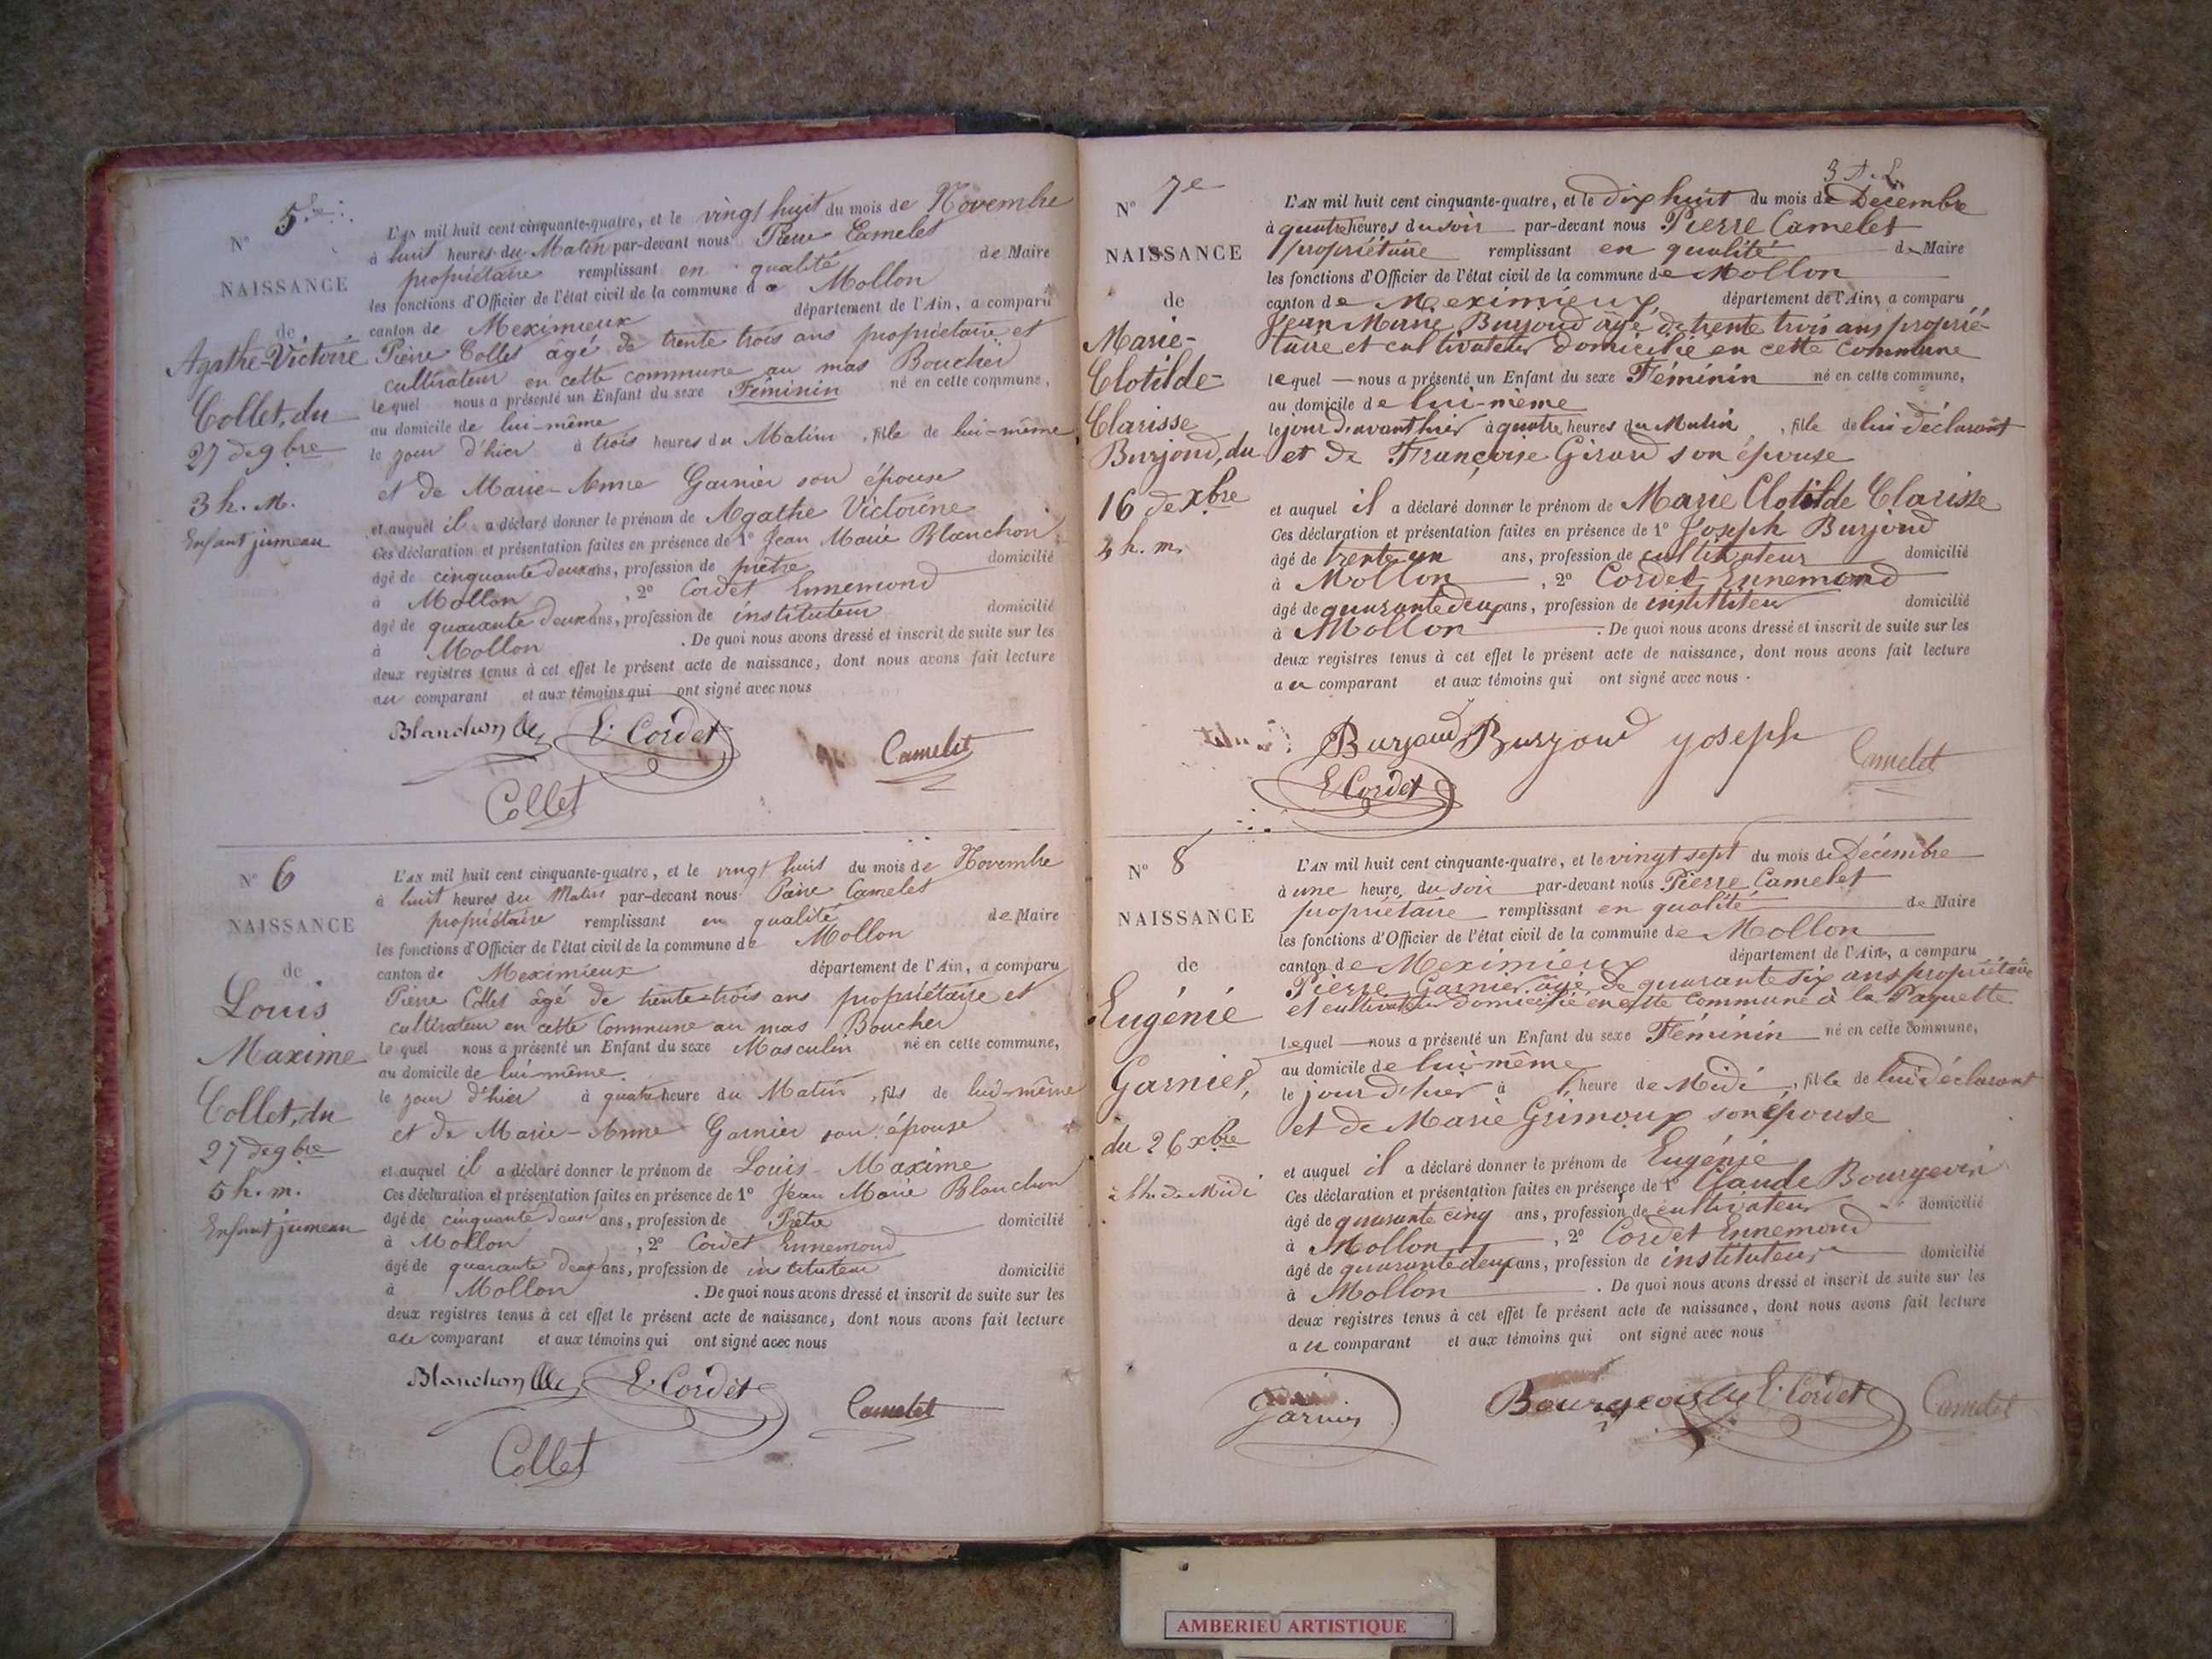 N° 5e
NAISSANCE
de
Agathe-Victoire
Collet, du
27 de 9bre
3 h. M.
Enfant jumeau
L'AN mil huit cent cinquante-quatre, et le vingt huit du mois de Novembre
à huit heures du Matin par-devant nous Pierre Camelet
propriétaire remplissant en qualité de Maire
les fonctions d'Officier de l'état civil de la commune de Mollon
canton de Meximieux département de l'Ain, a comparu
Pierre Collet âgé de trente trois ans propriétaire et
cultivateur en cette commune au mas Boucher
lequel nous a présenté un Enfant du sexe Féminin né en cette commune,
au domicile de lui-même
le jour d'hier à trois heures du Matin, fille de lui-même
et de Marie-Anne Garnier son épouse
et auquel il a déclaré donner le prénom de Agathe Victorine
Ces déclaration et présentation faites en présence de 1° Jean Marie Blanchon
âgé de cinquante deux ans, profession de prêtre domicilié
à Mollon, 2° Cordet Ennemond
âgé de quarante deux ans, profession de instituteur domicilié
à Mollon. De quoi nous avons dressé et inscrit de suite sur les
deux registres tenus à cet effet le présent acte de naissance, dont nous avons fait lecture
au comparant et aux témoins qui ont signé avec nous
Blanchon E. Cordet Camelet
Collet
N° 6
NAISSANCE
de
Louis
Maxime
Collet, du
27 de 9bre
5 h. m.
Enfant jumeau
L'AN mil huit cent cinquante-quatre, et le vingt huit du mois de Novembre
à huit heures du Matin par-devant nous Pierre Camelet
propriétaire remplissant en qualité de Maire
les fonctions d'Officier de l'état civil de la commune de Mollon
canton de Meximieux département de l'Ain, a comparu
Pierre Collet âgé de trente-trois ans propriétaire et
cultivateur en cette Commune au mas Boucher
lequel nous a présenté un Enfant du sexe Masculin né en cette commune,
au domicile de lui-même
le jour d'hier à quatre heure du Matin, fils de lui-même
et de Marie-Anne Garnier son épouse
et auquel il a déclaré donner le prénom de Louis-Maxime
Ces déclaration et présentation faites en présence de 1° Jean Marie Blanchon
âgé de cinquante deux ans, profession de Prêtre domicilié
à Mollon, 2° Cordet Ennemond
âgé de quarante deux ans, profession de instituteur domicilié
à Mollon. De quoi nous avons dressé et inscrit de suite sur les
deux registres tenus à cet effet le présent acte de naissance, dont nous avons fait lecture
au comparant et aux témoins qui ont signé avec nous
Blanchon E. Cordet Camelet
Collet
N° 7e
NAISSANCE
de
Marie-
Clotilde-
Clarisse
Burjoud, du
16 de Xbre
4 h. m.
L'AN mil huit cent cinquante-quatre, et le dix huit du mois de Décembre
à quatre heures du soir par-devant nous Pierre Camelet
propriétaire remplissant en qualité de Maire
les fonctions d'Officier de l'état civil de la commune de Mollon
canton de Meximieux département de l'Ain, a comparu
Jean Marie Burjoud âgé de trente trois ans proprié-
taire et cultivateur domicilié en cette commune
lequel nous a présenté un Enfant du sexe Féminin né en cette commune,
au domicile de lui-même
le jour d'avant hier à quatre heures du Matin, fille de lui déclarant
et de Françoise Girard son épouse
et auquel il a déclaré donner le prénom de Marie Clotilde Clarisse
Ces déclaration et présentation faites en présence de 1° Joseph Burjoud
âgé de trente un ans, profession de cultivateur domicilié
à Mollon, 2° Cordet Ennemond
âgé de quarante deux ans, profession de instituteur domicilié
à Mollon. De quoi nous avons dressé et inscrit de suite sur les
deux registres tenus à cet effet le présent acte de naissance, dont nous avons fait lecture
au comparant et aux témoins qui ont signé avec nous.
Burjoud Burjoud joseph Camelet
E. Cordet
N° 8
NAISSANCE
de
Eugénie
Garnier,
du 26 xbre
à 1 h. de Midi
L'AN mil huit cent cinquante-quatre, et le vingt sept du mois de Décembre
à une heure du soir par-devant nous Pierre Camelet
propriétaire remplissant en qualité de Maire
les fonctions d'Officier de l'état civil de la commune de Mollon
canton de Meximieux département de l'Ain, a comparu
Pierre Garnier âgé de quarante six ans propriétaire
et cultivateur domicilié en cette commune à la Paquette
lequel nous a présenté un Enfant du sexe Féminin né en cette commune,
au domicile de lui-même
le jour d'hier à 1 heure de Midi, fille de lui déclarant
et de Marie Grimoux son épouse
et auquel il a déclaré donner le prénom de Eugénie
Ces déclaration et présentation faites en présence de 1° Claude Bourgeois
âgé de quarante cinq ans, profession de cultivateur domicilié
à Mollon, 2° Cordet Ennemond
âgé de quarante deux ans, profession de instituteur domicilié
à Mollon. De quoi nous avons dressé et inscrit de suite sur les
deux registres tenus à cet effet le présent acte de naissance, dont nous avons fait lecture
au comparant et aux témoins qui ont signé avec nous
Garnier Bourgeois E. Cordet Camelet
AMBERIEU ARTISTIQUE